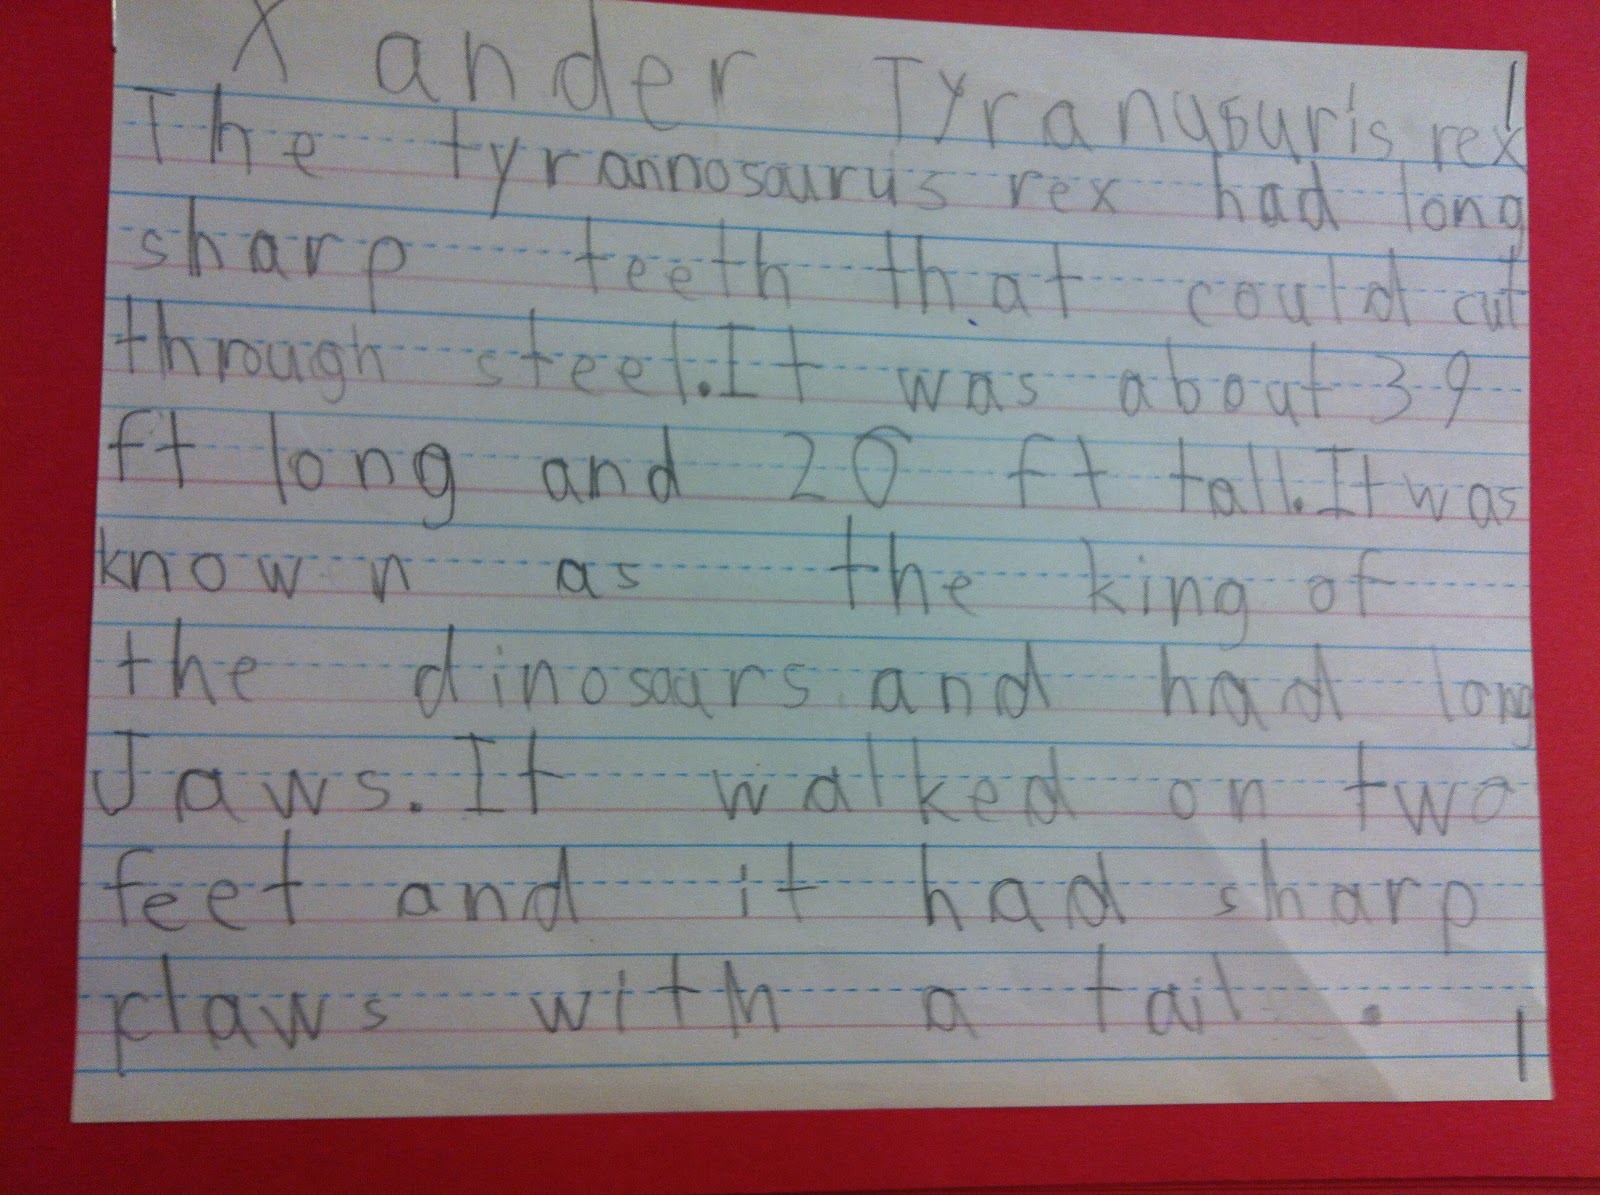 Xander Tyranysuris rex
The tyrannosaurus rex had long
sharp teeth that could cut
through steel. It was about 39
ft long and 20 ft tall. It was
known as the king of
the dinosaurs and had long
Jaws. It walked on two
feet and it had sharp
claws with a tail.